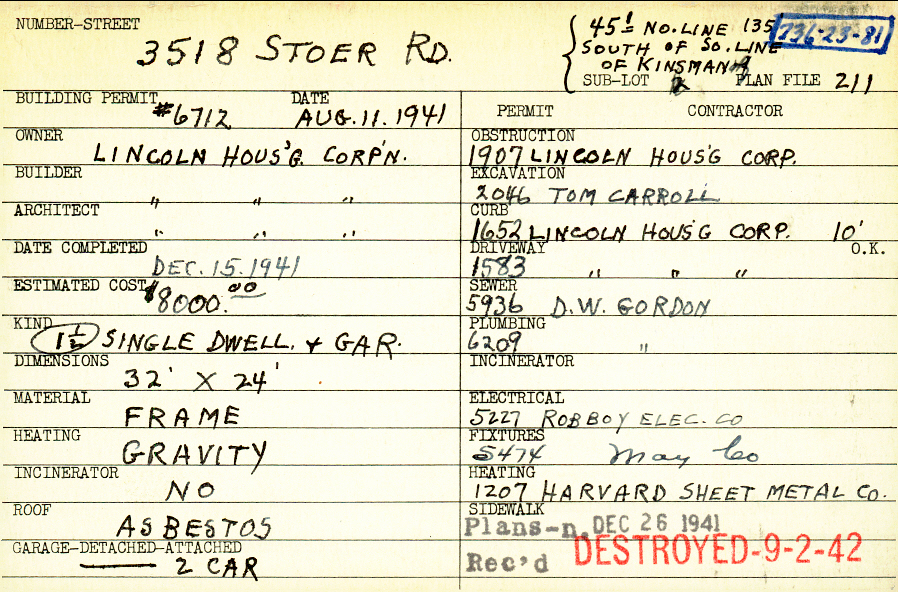 NUMBER-STREET
3518 STOER RD.
45' NO. LINE 135
SOUTH OF SO. LINE
OF KINSMAN
736-23-81
SUB-LOT PLAN FILE 211
BUILDING PERMIT DATE
#6712 AUG. 11. 1941
OWNER
LINCOLN HOUS'G. CORP'N.
BUILDER
" " "
ARCHITECT
" " "
DATE COMPLETED
DEC. 15. 1941
ESTIMATED COST
$8000.00
KIND
1 1/2 SINGLE DWELL. + GAR.
DIMENSIONS
32' X 24'
MATERIAL
FRAME
HEATING
GRAVITY
INCINERATOR
NO
ROOF
ASBESTOS
GARAGE-DETACHED-ATTACHED
2 CAR
PERMIT CONTRACTOR
OBSTRUCTION
1907 LINCOLN HOUS'G CORP.
EXCAVATION
2046 TOM CARROLL
CURB
1652 LINCOLN HOUS'G CORP. 10'
DRIVEWAY O.K.
1583 " " "
SEWER
5936 D.W. GORDON
PLUMBING
6209 "
INCINERATOR
ELECTRICAL
5227 ROBBOY ELEC. CO
FIXTURES
5474 May Co
HEATING
1207 HARVARD SHEET METAL CO.
SIDEWALK
Plans-n. DEC 26 1941
Rec'd DESTROYED-9-2-42